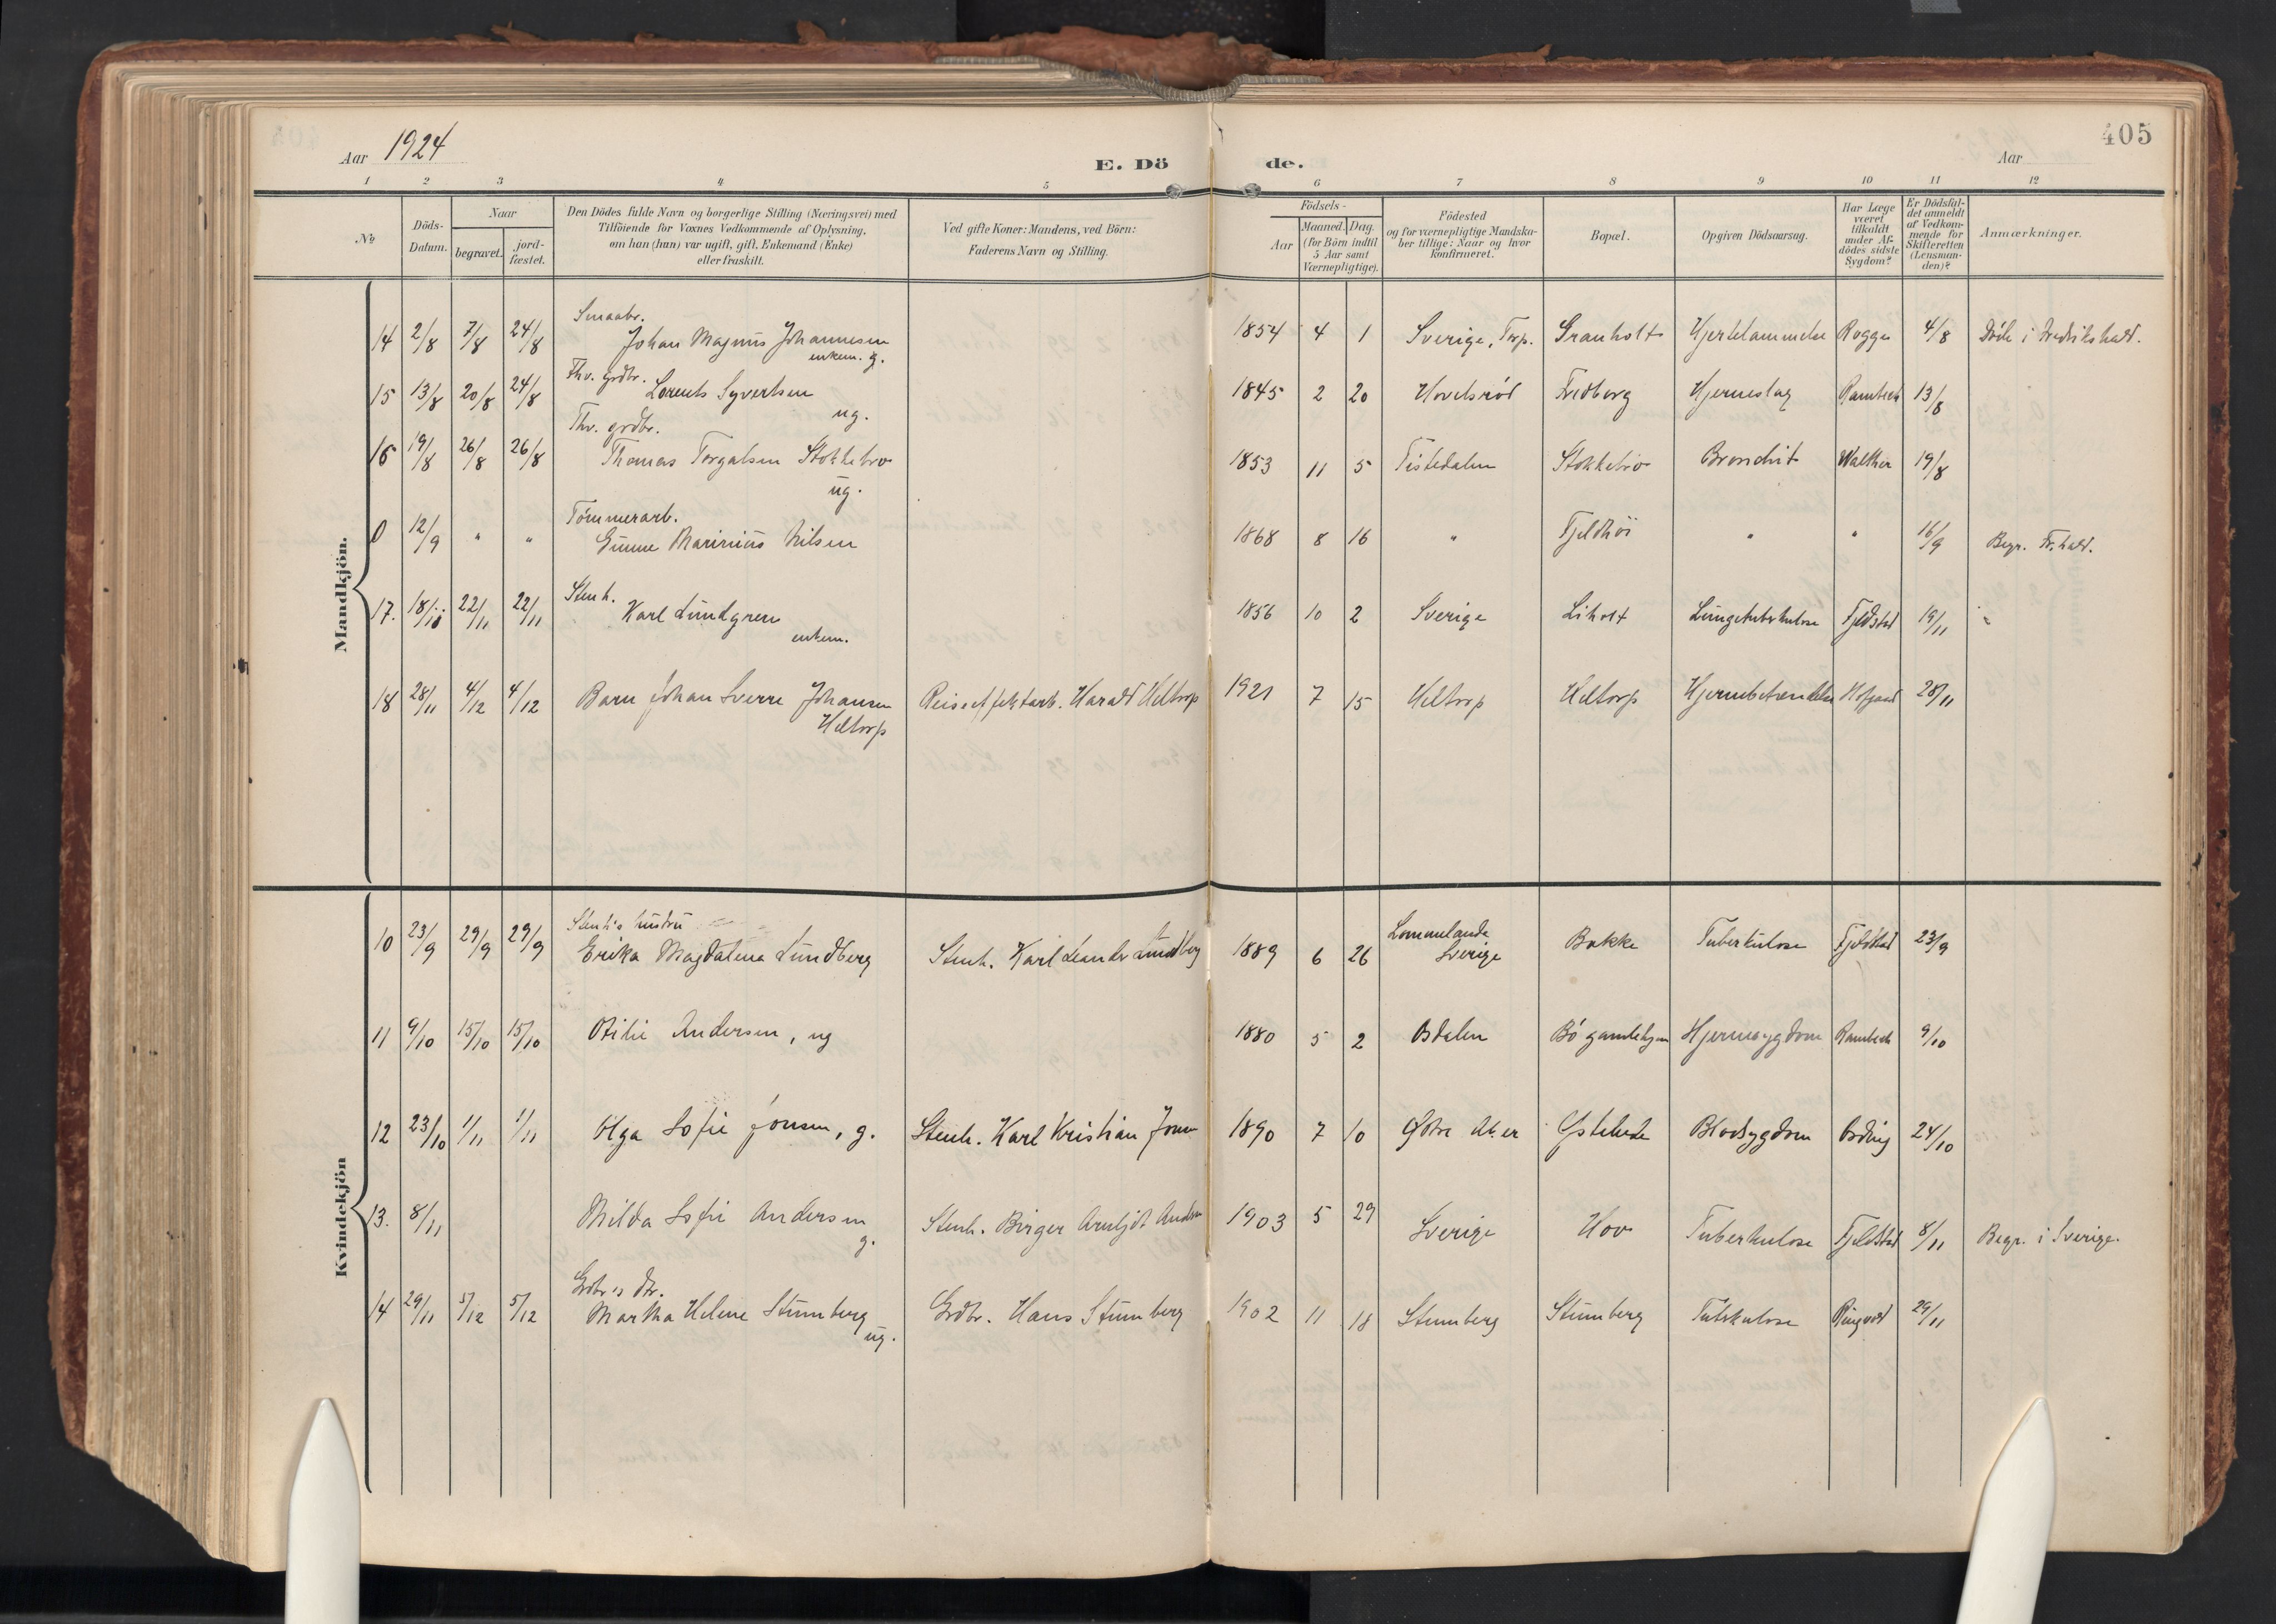 Aar 1924
E. Dö de.
Aar
405
1 2 3 4 5 6 7 8 9 10 11 12
No
Döds-Datum.
Naar
begravet.
jord-fæstet.
Den Dödes fulde Navn og borgerlige Stilling (Næringsvei) med
Tilföiende for Voxnes Vedkommende af Oplysning,
om han (hun) var ugift, gift, Enkemand (Enke)
eller fraskilt.
Ved gifte Koner: Mandens, ved Börn:
Faderens Navn og Stilling.
Födsels-
Aar
Maaned. Dag.
(for Börn indtil
5 Aar samt
Værnepligtige).
Födested
og for værnepligtige Mandska-
ber tillige: Naar og hvor
konfirmeret.
Bopæl.
Opgiven Dödsaarsag.
Har Læge
været
tilkaldt
under Af-
dödes sidste
Sygdom?
Er Dödsfal-
det anmeldt
af Vedkom-
mende for
Skifteretten
(Lensman-
den)?
Anmærkninger.
Mandkjön.
Smaabr.
14 2/8 7/8 24/8 Johan Magnus Johannesen 1854 4 1 Sverige, Torp. Granholt Hjertelammelse Rogge 4/8 Døde i Fredrikshald.
enkem. g.
Fhv. grdbr.
15 13/8 20/8 24/8 Lorents Syvertsen 1845 2 20 Hovelsrød Fredborg Hjerneslag Rambech 13/8
ug.
Fhv. grdbr.
16 19/8 26/8 26/8 Thomas Torgalsen Stokkebro 1853 11 5 Tistedalen Stokkebro Bronchit Walther 19/8
ug.
Tömmerarb.
0 12/9 " " Marinius Nilsen 1868 8 16 " Fjeldhöi " " 16/9 Begr. Fr.hald.
Stenh.
17. 22/11 22/11 Karl Lundgren 1856 10 2 Sverige Liholt Lungetuberkulose Fjeldstad 19/11 "
enkem.
18 28/11 4/12 4/12 Barn Johan Sverre Johansen Reiseeffektarb. Harald Heltorp 1921 7 15 Heltorp Heltorp Hjernebetændelse Hofgaard 28/11
Heltorp
Kvindekjön
Stenh's hustru
10 23/9 29/9 29/9 Erika Magdalena Lundberg Stenh. Karl Leander Lundberg 1889 6 26 Lommelanda Sverige Bakke Tuberkulose Fjeldstad 23/9
11 9/10 15/10 15/10 Otilie Andersen, ug 1880 5 2 Osdalen Bö gamlehjem Hjernesygdom Rambech 9/10
12 23/10 1/11 1/11 Olga Sofie Jonsen, g. Stenh. Karl Kristian Jonsen 1890 7 10 Østre Aker Ystehede Blodsygdom Ording 24/10
13. 8/11 Milda Sofie Andersen Stenh. Birger Arnljot Andersen 1903 5 29 Sverige Hov Tuberkulose Fjeldstad 8/11 Begr. i Sverige.
g.
Grdbr's dtr.
14 29/11 5/12 5/12 Martha Helene Stumberg Grdbr. Hans Stumberg 1902 11 18 Stumberg Stumberg Tuberkulose Ringvold 29/11
ug.